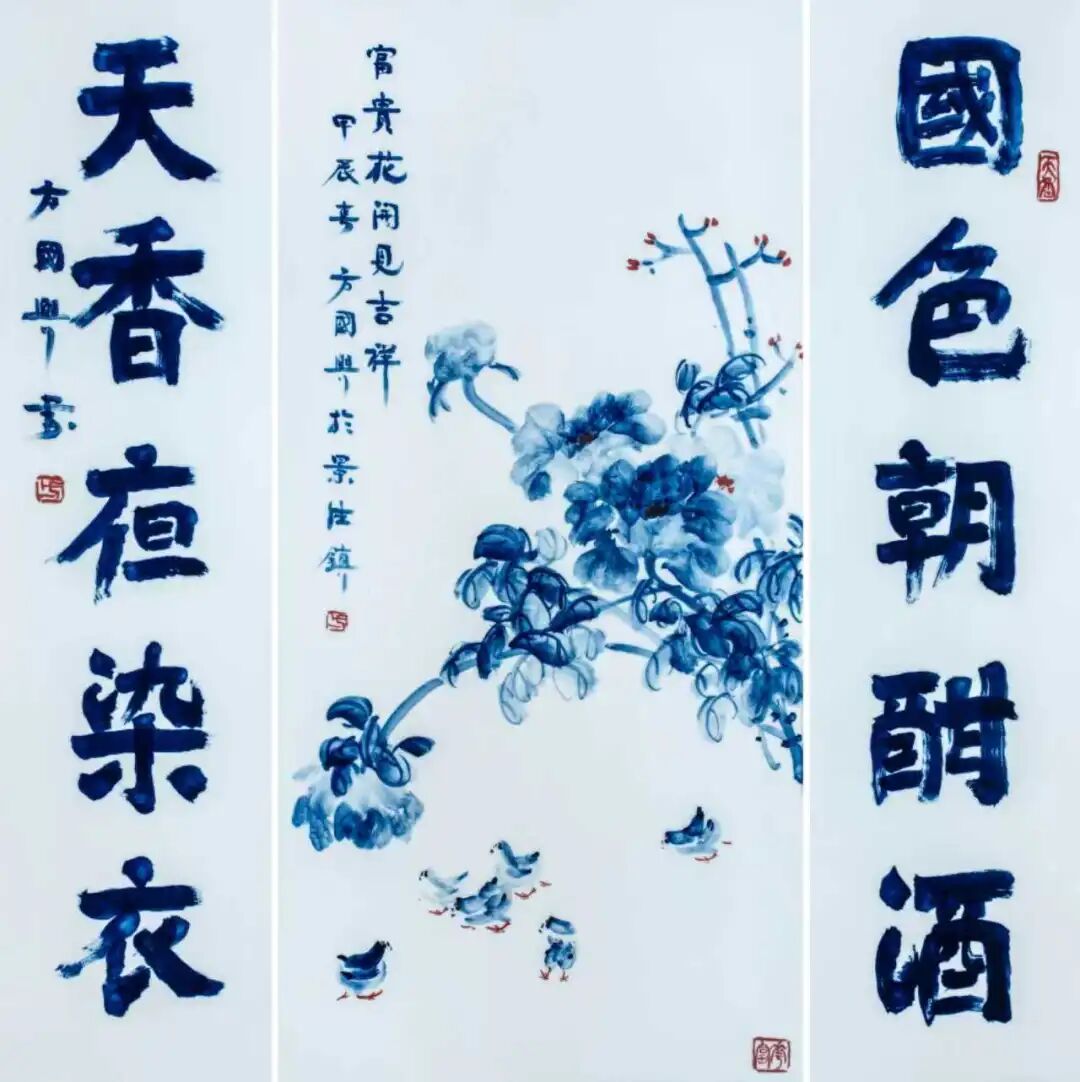 國色朝酣酒
富貴花開見吉祥
甲辰春方國興於景德鎮
天香亱染衣
方國興書